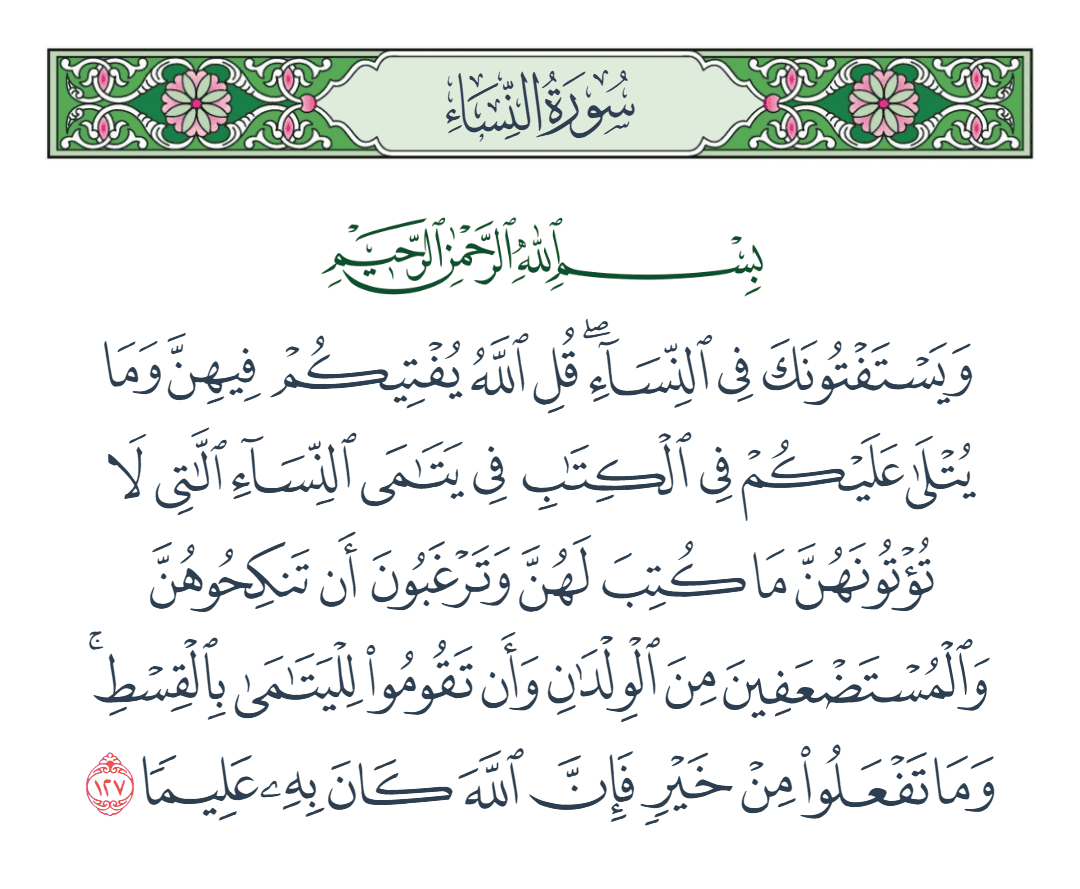 سُورَةُ النِّسَاءِ
بِسْمِ ٱللَّهِ ٱلرَّحْمَٰنِ ٱلرَّحِيمِ
وَيَسْتَفْتُونَكَ فِى ٱلنِّسَآءِۖ قُلِ ٱللَّهُ يُفْتِيكُمْ فِيهِنَّ وَمَا
يُتْلَىٰ عَلَيْكُمْ فِى ٱلْكِتَٰبِ فِى يَتَٰمَى ٱلنِّسَآءِ ٱلَّٰتِى لَا
تُؤْتُونَهُنَّ مَا كُتِبَ لَهُنَّ وَتَرْغَبُونَ أَن تَنكِحُوهُنَّ
وَٱلْمُسْتَضْعَفِينَ مِنَ ٱلْوِلْدَٰنِ وَأَن تَقُومُوا۟ لِلْيَتَٰمَىٰ بِٱلْقِسْطِۚ
وَمَا تَفْعَلُوا۟ مِنْ خَيْرٍ فَإِنَّ ٱللَّهَ كَانَ بِهِۦ عَلِيمًا ١٢٧